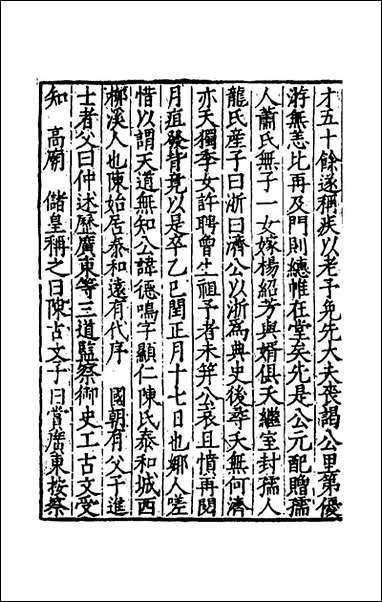 才五十餘遂稱疾以老子免先大夫喪謁公里第優
游無恙比再及門則繐帷在堂矣先是公元配贈孺
人蕭氏無子一女嫁楊紹芳與婿俱夭繼室封孺人
龍氏産子曰浙曰濟公以浙爲典史後尋夭無何濟
亦夭獨季女許聘曾生祖予者未笄公哀且憤再閱
月疽發背竟以是卒乙巳閏正月十七日也鄉人嗟
惜以謂天道無知公諱德鳴字顯仁陳氏泰和城西
柳溪人也陳始居泰和遠有代序 國朝有父子進
士者父曰仲述歷廣東等三道監察御史工古文受
知 高廟 儲皇稱之曰陳古文子曰賞廣東按察